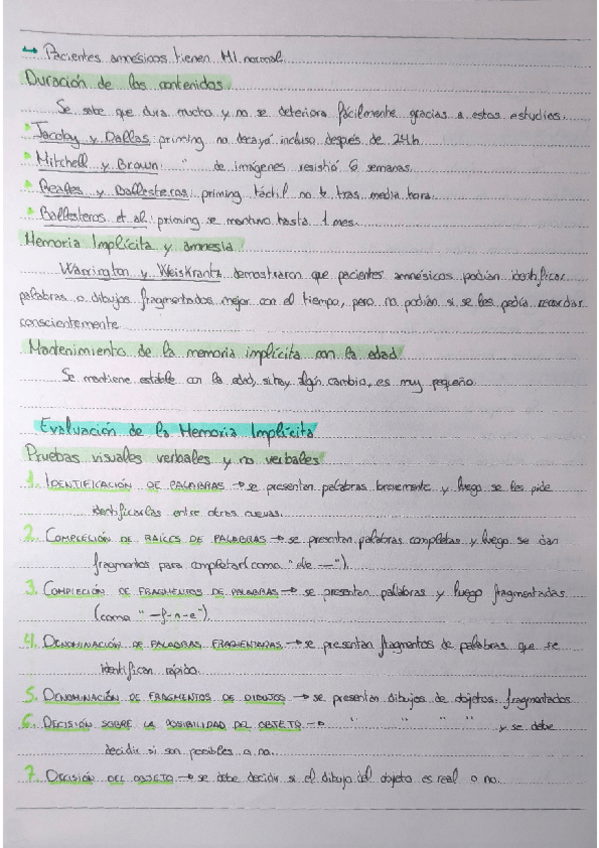 ↳ Pacientes amnésicos tienen MI normal.
Duración de los contenidos
Se sabe que dura mucho y no se deteriora fácilmente gracias a estos estudios.
Jacoby y Dallas: priming no decayó incluso después de 24h
Mitchell y Brown: " de imágenes resistió 6 semanas.
Reales y Ballesteros: priming táctil no ↓ tras media hora.
Ballesteros et al.: priming se mantuvo hasta 1 mes.
Memoria Implícita y amnesia
Warrington y Weiskrantz demostraron que pacientes amnésicos podían identificar
palabras o dibujos fragmentados mejor con el tiempo, pero no podían si se les pedía recordar
conscientemente
Mantenimiento de la memoria implícita con la edad
Se mantiene estable con la edad, si hay algún cambio, es muy pequeño.
Evaluación de la Memoria Implícita
Pruebas visuales verbales y no verbales
1. IDENTIFICACIÓN DE PALABRAS → se presentan palabras brevemente y luego se les pide
identificarlas entre otras nuevas.
2. COMPLECIÓN DE RAÍCES DE PALABRAS → se presentan palabras completas y luego se dan
fragmentos para completar (como "ele —").
3. COMPLECIÓN DE FRAGMENTOS DE PALABRAS → se presentan palabras y luego fragmentadas
(como "-f-n-e").
4. DENOMINACIÓN DE PALABRAS FRAGMENTADAS → se presentan fragmentos de palabras que se
identifican rápido.
5. DENOMINACIÓN DE FRAGMENTOS DE DIBUJOS → se presentan dibujos de objetos fragmentados
6. DECISIÓN SOBRE LA POSIBILIDAD DEL OBJETO → " " " " y se debe
decidir si son posibles o no.
7. DECISIÓN DEL OBJETO → se debe decidir si el dibujo del objeto es real o no.